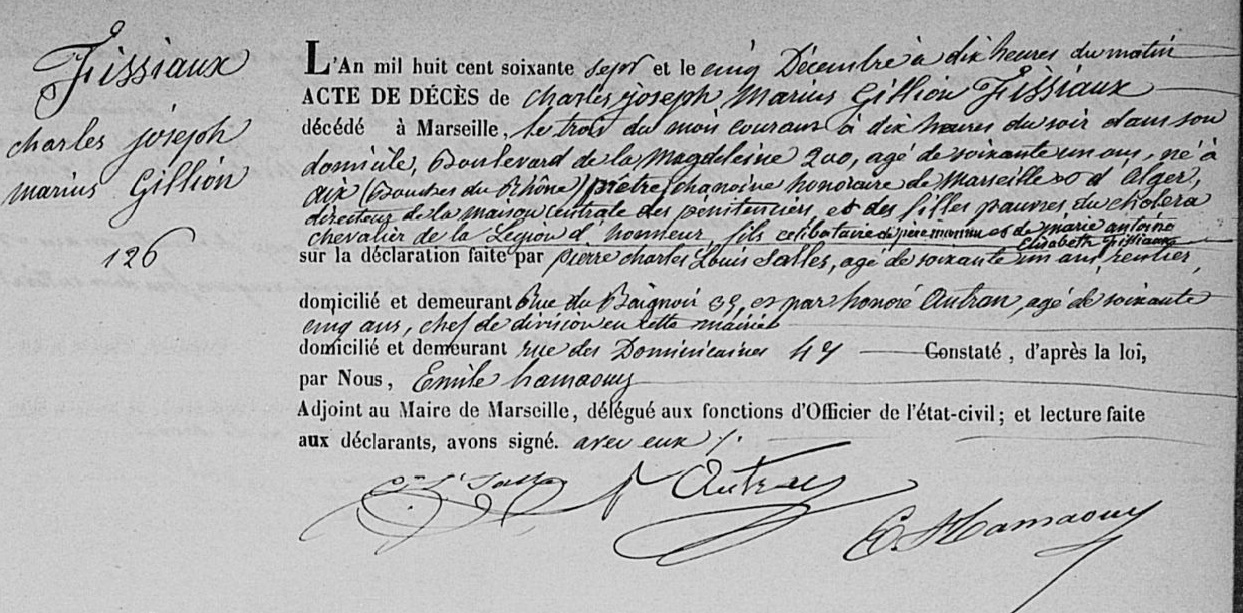 Fissiaux
charles joseph
marius Gillion
126
L'An mil huit cent soixante sept et le cinq Décembre à dix heures du matin
ACTE DE DÉCÈS de charles joseph Marius Gillion Fissiaux
décédé à Marseille, le trois du mois courant à dix heures du soir dans son
domicile, Boulevard de la Magdeleine 200, agé de soixante un ans, né à
aix (Bouches du Rhône) prêtre, chanoine honoraire de Marseille & d'Alger,
directeur de la maison Centrale des pénitenciers, et des filles pauvres du cholera
chevalier de la Légion d'honneur, fils celibataire de père inconnu et de marie antoine
Elisabeth Fissiaux
sur la déclaration faite par pierre charles Louis Salles, agé de soixante un ans, rentier
domicilié et demeurant Rue du Baignoir 39, et par honoré Autran, agé de soixante
cinq ans, chef de division en cette mairie
domicilié et demeurant rue des Dominicaines 47 Constaté, d'après la loi,
par Nous, Emile hamaouy
Adjoint au Maire de Marseille, délégué aux fonctions d'Officier de l'état-civil; et lecture faite
aux déclarants, avons signé. avec eux /.
Salles Autran
E. Hamaouy